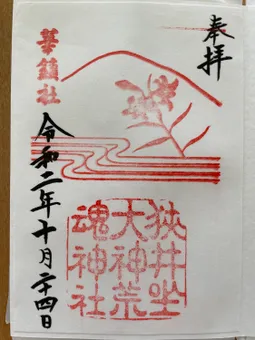 奉拝
華鎮社
令和二年十月二十四日
狭井坐
大神荒
魂神社